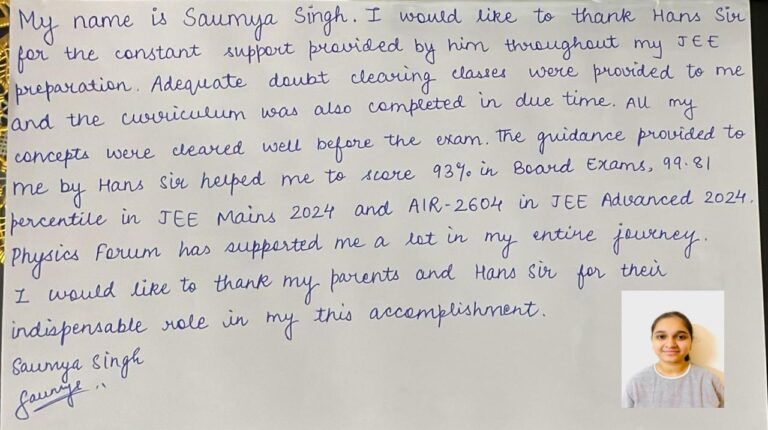 My name is Saumya Singh. I would like to thank Hans Sir
for the constant support provided by him throughout my JEE
preparation. Adequate doubt clearing classes were provided to me
and the curriculum was also completed in due time. All my
concepts were cleared well before the exam. The guidance provided to
me by Hans Sir helped me to score 93% in Board Exams, 99.81
percentile in JEE Mains 2024 and AIR-2604 in JEE Advanced 2024.
Physics Forum has supported me a lot in my entire journey.
I would like to thank my parents and Hans Sir for their
indispensable role in my this accomplishment.
Saumya Singh
Saumya